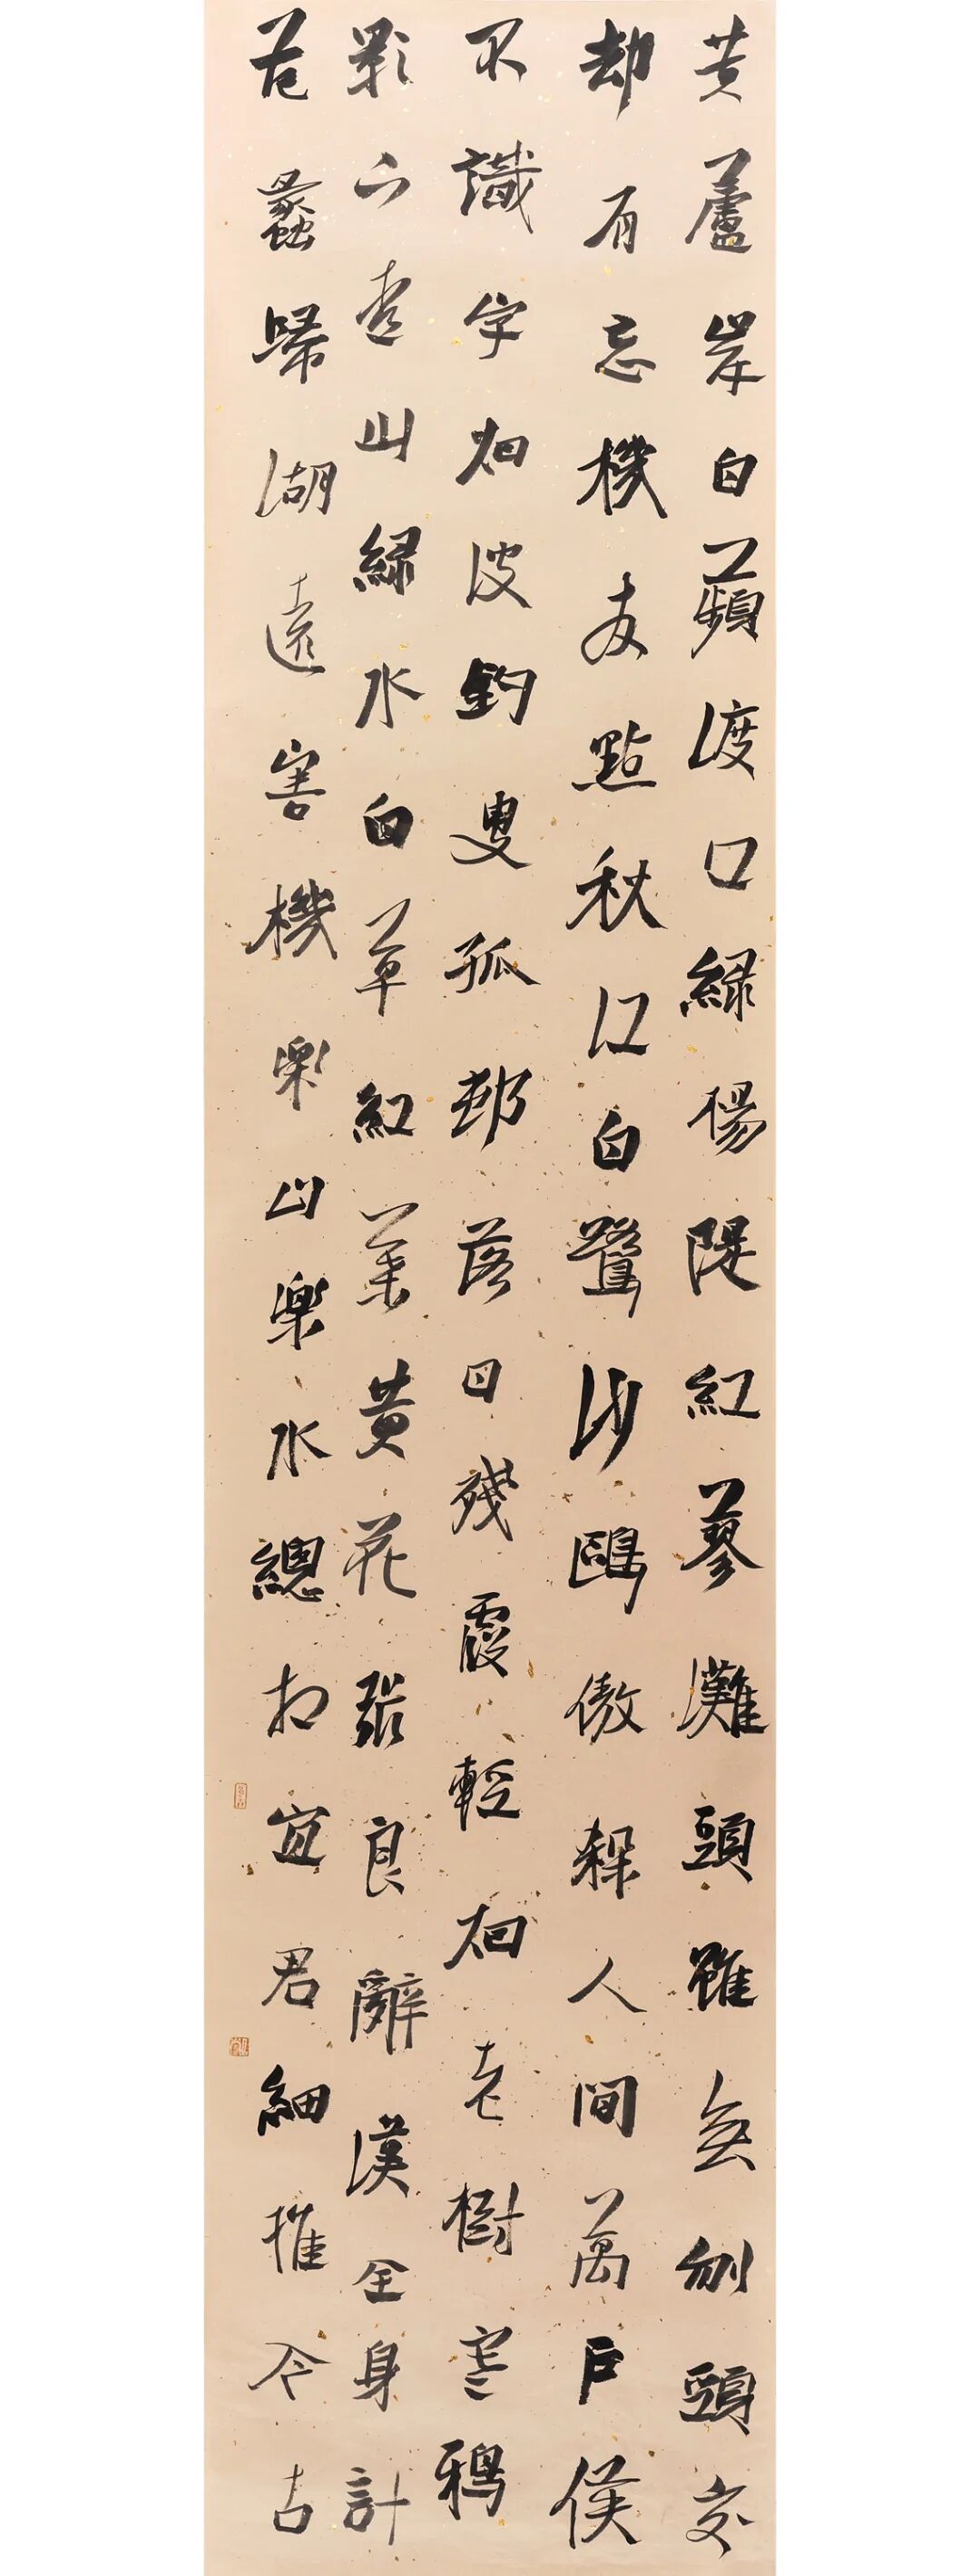 黄蘆岸白蘋渡口綠楊隄紅蓼灘頭雖無刎頸交
却有忘機友點秋江白鷺沙鷗傲殺人間萬戶侯
不識字烟波釣叟孤邨落日殘霞輕烟老樹寒鴉
影下青山綠水白草紅葉黄花張良辭漢全身計
范蠡歸湖遠害機樂山樂水總相宜君細推今古